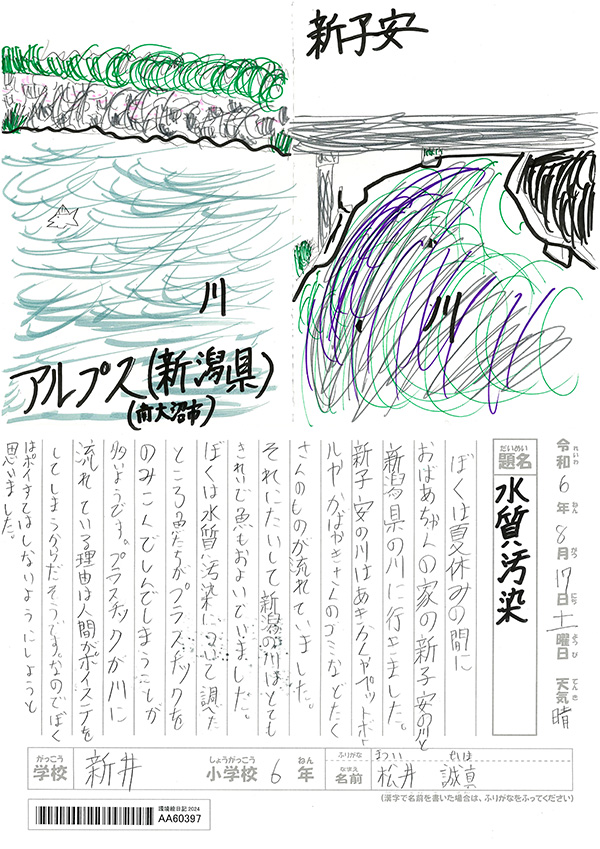 新子安
川
川
アルプス(新潟県)
(南大沼市)
令和6年8月17日土曜日 天気 晴
れいわ ねん がつ にち ようび てんき
だいめい
題名
水質汚染
ぼくは夏休みの間に
おばあちゃんの家の新子安の川と
新潟県の川に行きました。
新子安の川はあきかんやペットボト
ルや かばやきさんのゴミなどたく
さんのものが流れていました。
それにたいして新潟の川はとても
きれいで魚もおよいでいました。
ぼくは水質汚染について調べた
ところ魚たちがプラスチックを
のみこんでしんでしまうことが
多いようです。プラスチックが川に
流れている理由は人間がポイステを
してしまうからだそうです。なのでぼく
はポイすてはしないようにしようと
思いました。
がっこう
学校 新井
しょうがっこう ねん
小学校 6年
ふりがな まつい せいま
なまえ
名前 松井 誠真
(漢字で名前を書いた場合は、ふりがなをふってください)
環境絵日記2024
AA60397